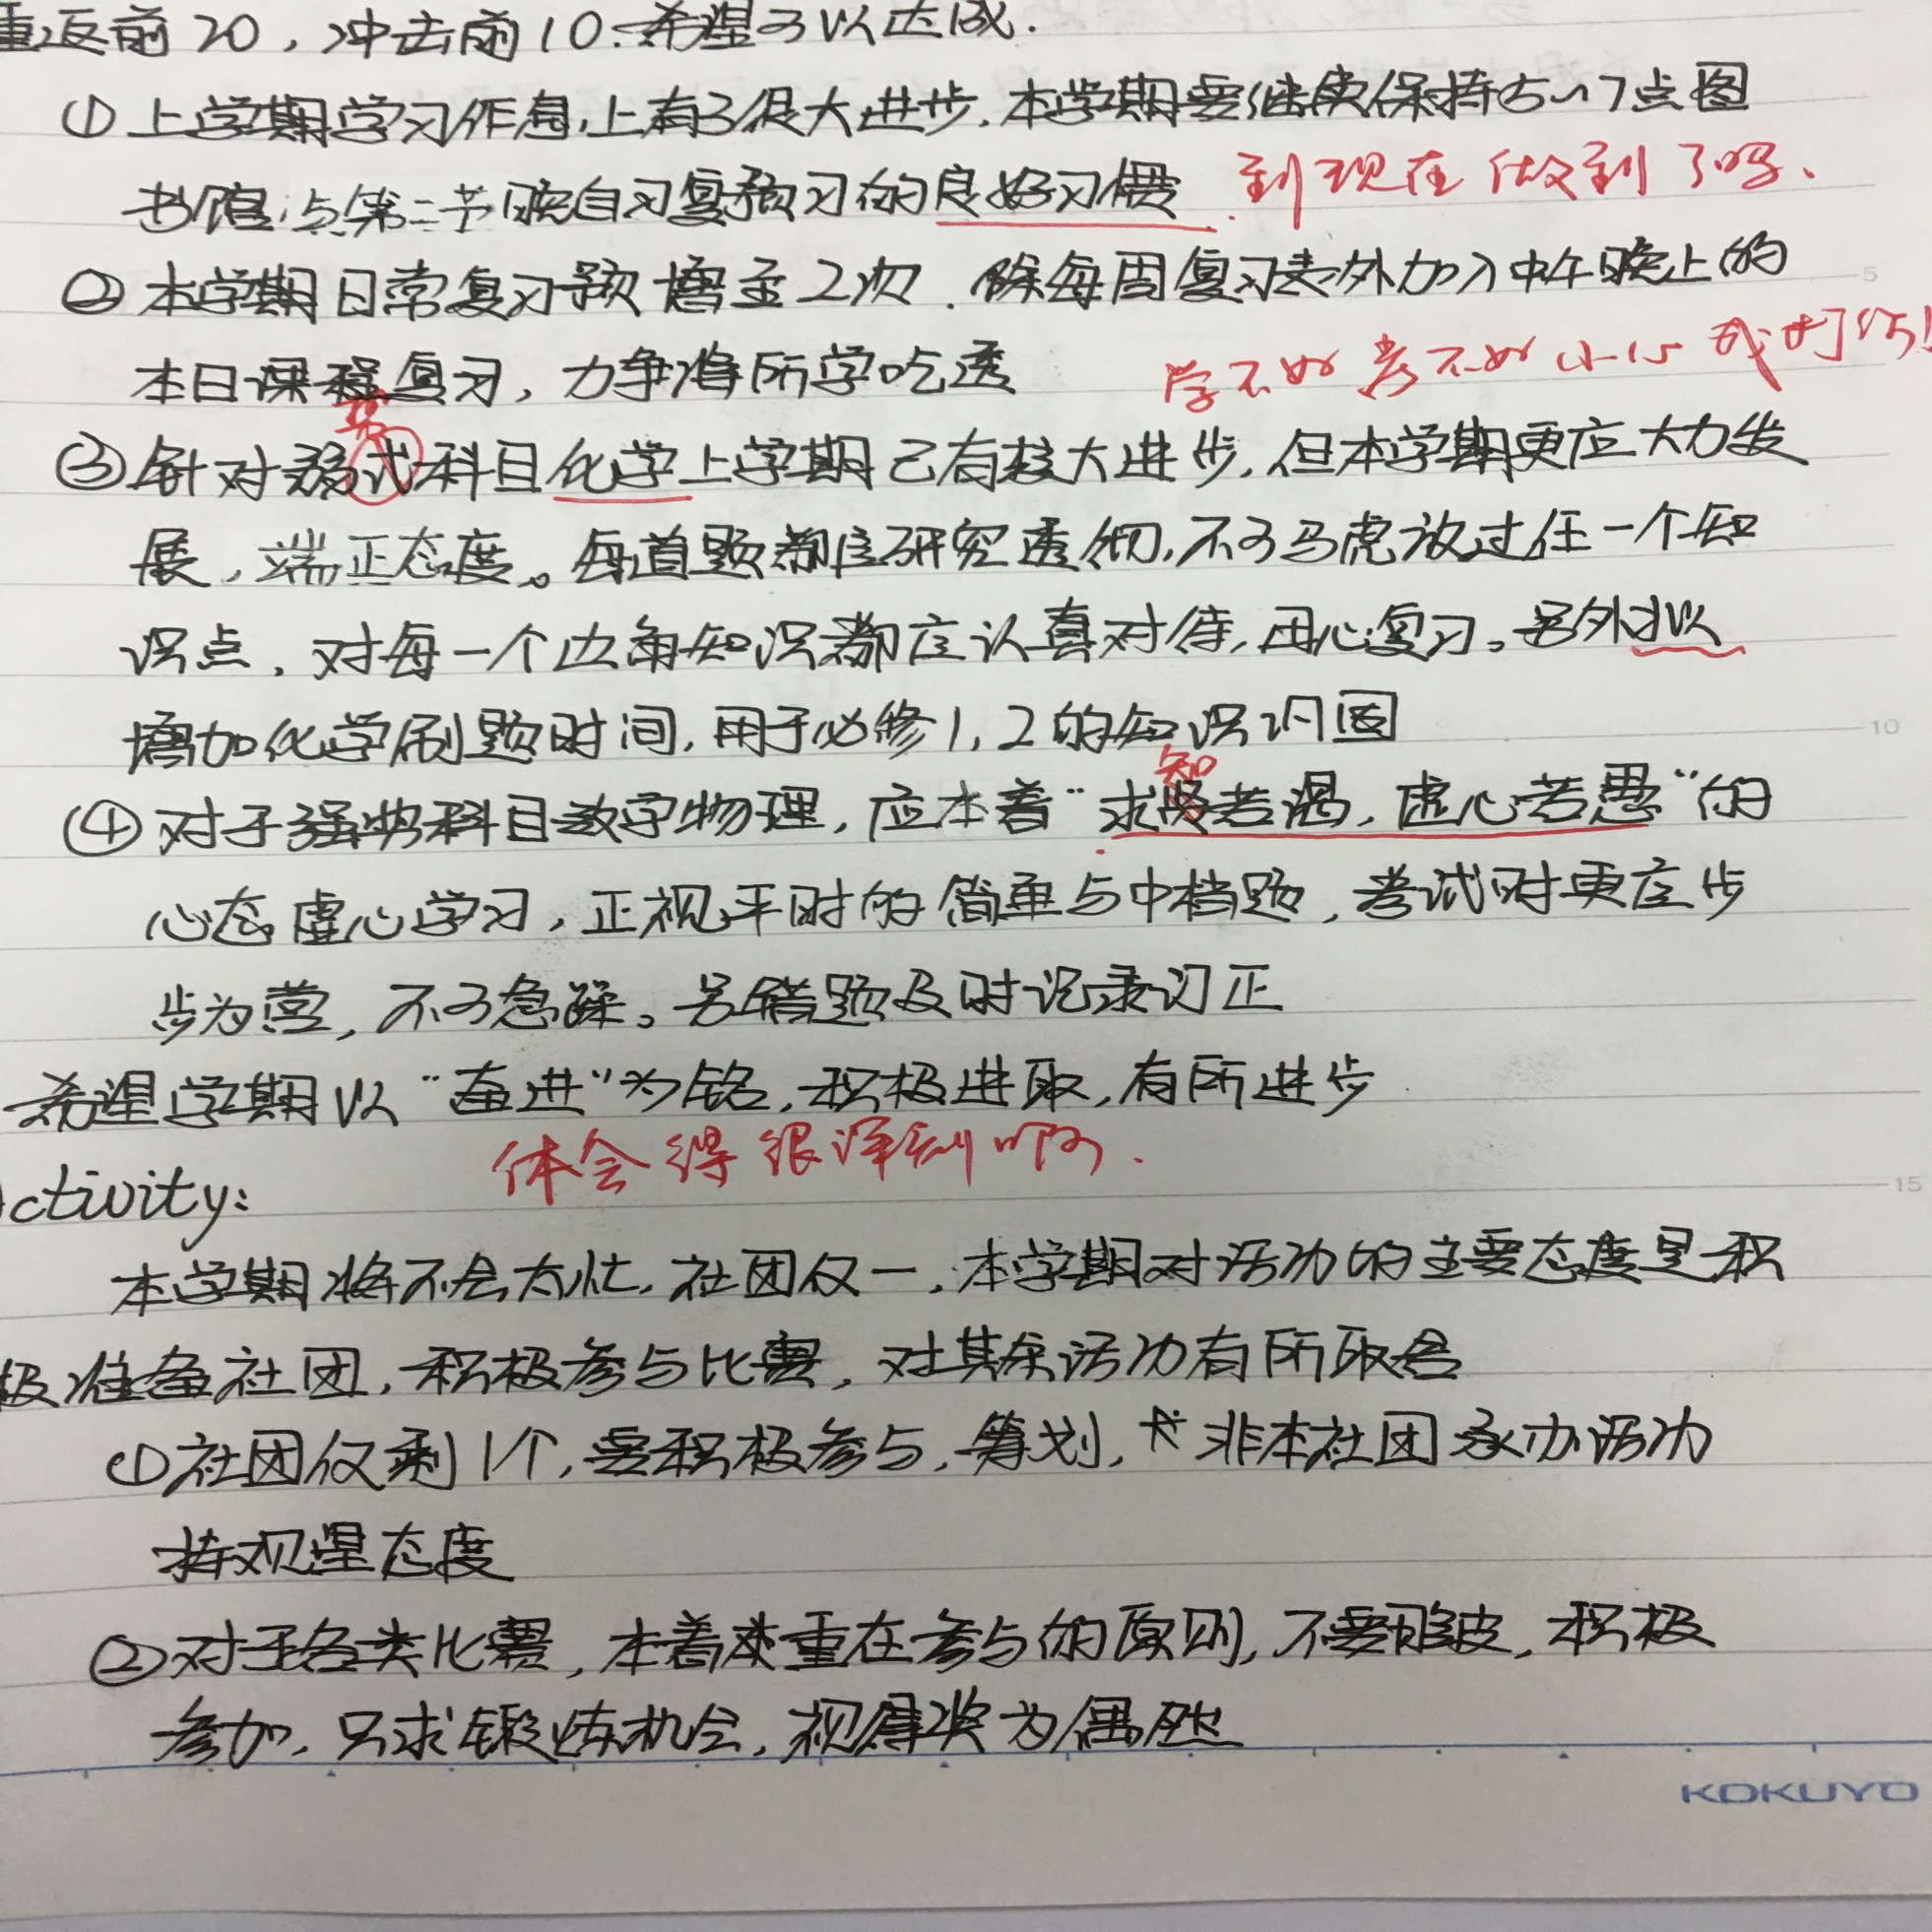 重返前20，冲击前10.希望可以达成.
①上学期学习作息上有了很大进步.本学期要继续保持占~7点图
书馆与第二节晚自习复预习的良好习惯 到现在做到了吗.
②本学期日常复习预增至2次.除每周复习表外加入中午晚上的
本日课程复习，力争将所学吃透 学不好考不好小心我打你!
势
③针对弱式科目化学上学期已有较大进步,但本学期更应大力发
展，端正态度。每道题都应研究透彻,不可马虎放过任一个知
识点，对每一个边角知识都应认真对待,用心复习。另外拟
增加化学刷题时间,用于必修1,2的知识巩固
知
④对于强势科目数学物理，应本着"求贤若渴，虚心若愚"的
心态虚心学习，正视平时的简单与中档题，考试时更应步
步为营，不可急躁。另错题及时记录订正
希望学期以"奋进"为铭,积极进取,有所进步
体会得很深刻啊.
ctivity:
本学期将不会太忙,社团仅一,本学期对活动的主要态度是积
极准备社团,积极参与比赛，对其余活动有所取舍
①社团仅剩1个,要积极参与,筹划,非本社团承办活动
持观望态度
②对于各类比赛，本着重在参与的原则,不要脸皮,积极
参加,只求锻炼机会,视得奖为偶然
KOKUYO
5
10
15